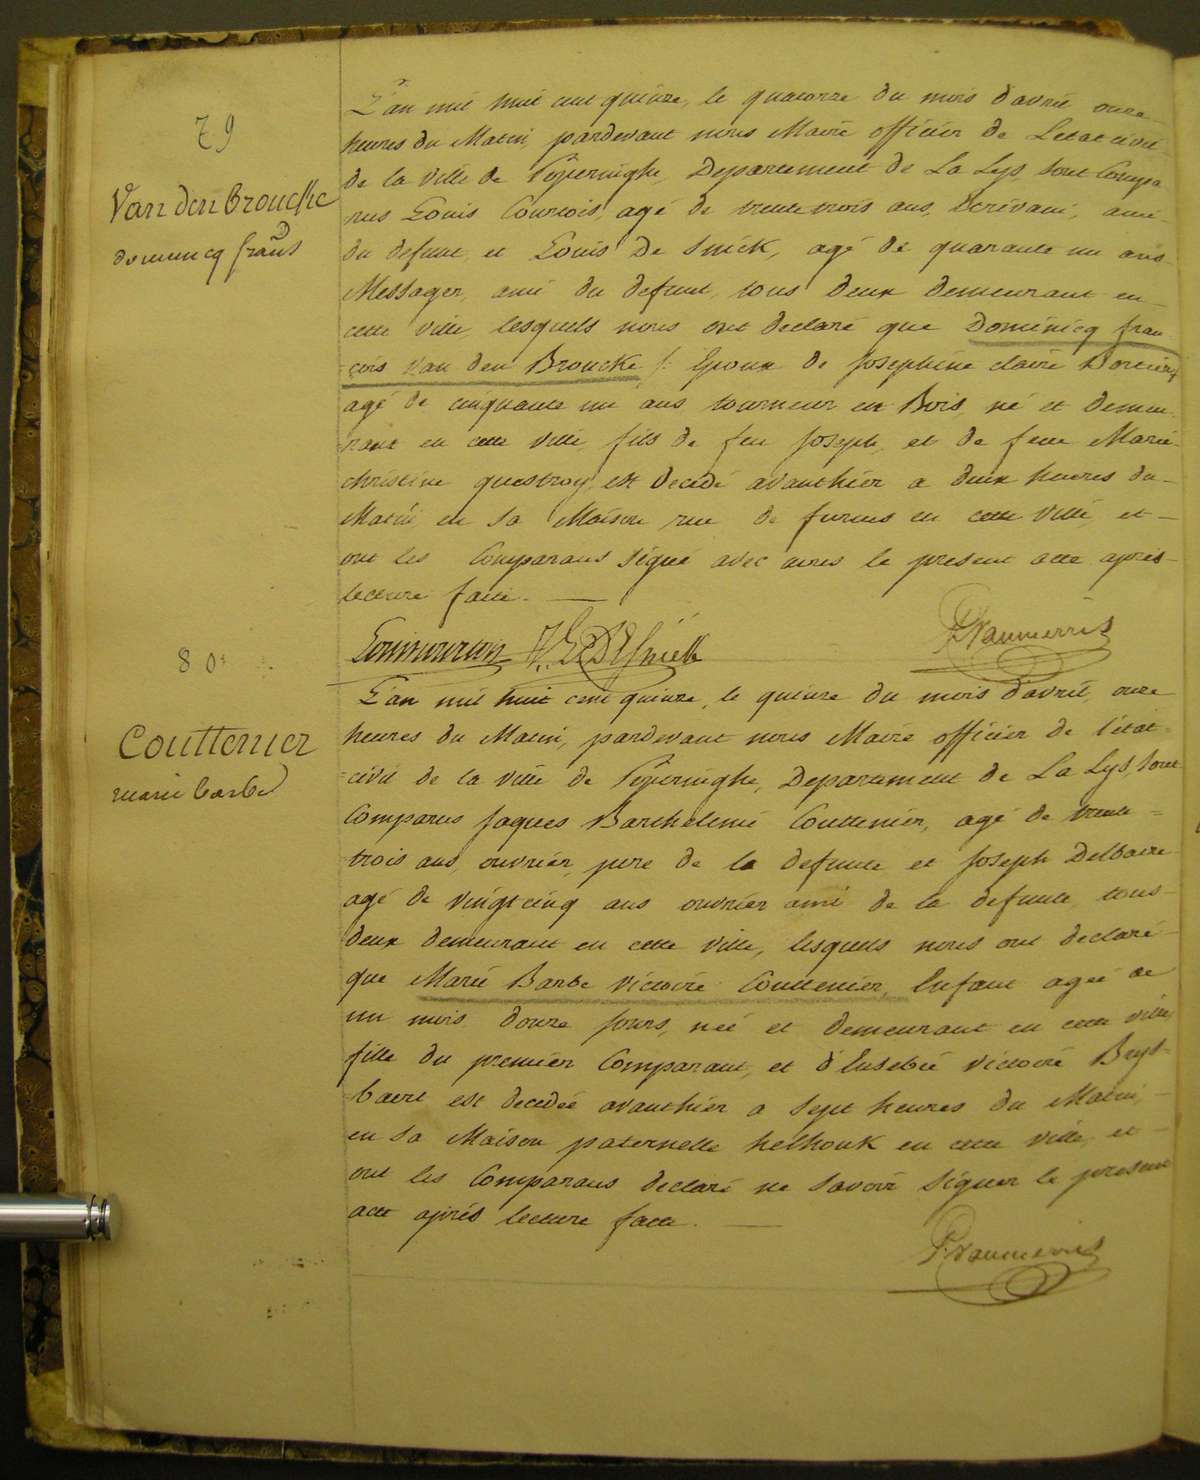 79
Van den brouche
domincq frans
L'an mil huit cent quinze, le quatorze du mois d'avril onze
heures du Matin, pardevant nous Maire officier de L'etat civil
de la ville de Poperinghe, Departement de La Lys, sont Compa
rus Louis Courtois, agé de trente trois ans, Ecrivain, ami
du defunt, et Louis De Snick, agé de quarante un ans
Messager, ami du defunt, tous deux demeurant en
cette ville, lesquels nous ont declaré que Dominicq fran
çois Van den Broucke /: Epoux de Josephine claire
agé de cinquante un ans tourneur en Bois, né et demeu
rant en cette ville, fils de feu Joseph, et de feue Marie
christine questroy est decedé avanthier a deux heures du
Matin en sa Maison rue de furnes en cette ville, et
ont les Comparans signé avec nous le present acte après
lecture faite.
DeSnick
80
Couttenier
marie barbe
L'an mil huit cent quinze, le quinze du mois d'avril, onze
heures du Matin, pardevant nous Maire officier de l'état
civil de la ville de Poperinghe, Departement de La Lys, sont
Comparus Jaques Barthelemé Couttenier, agé de trente
trois ans, ouvrier, pere de la defunte et Joseph Delbaere
agé de vingt cinq ans ouvrier ami de la defunte, tous
deux demeurant en cette ville, lesquels nous ont declaré
que Marie Barbe Victoire Couttenier, Enfant agée de
un mois douze Jours, née et demeurant en cette ville
fille du premier Comparant, et d'Eusebie Victoire Beys
baert est decedée avanthier a Sept heures du Matin,
en sa Maison paternelle helhouk en cette ville, et
ont les Comparans declaré ne savoir signer le present
acte après lecture faite.